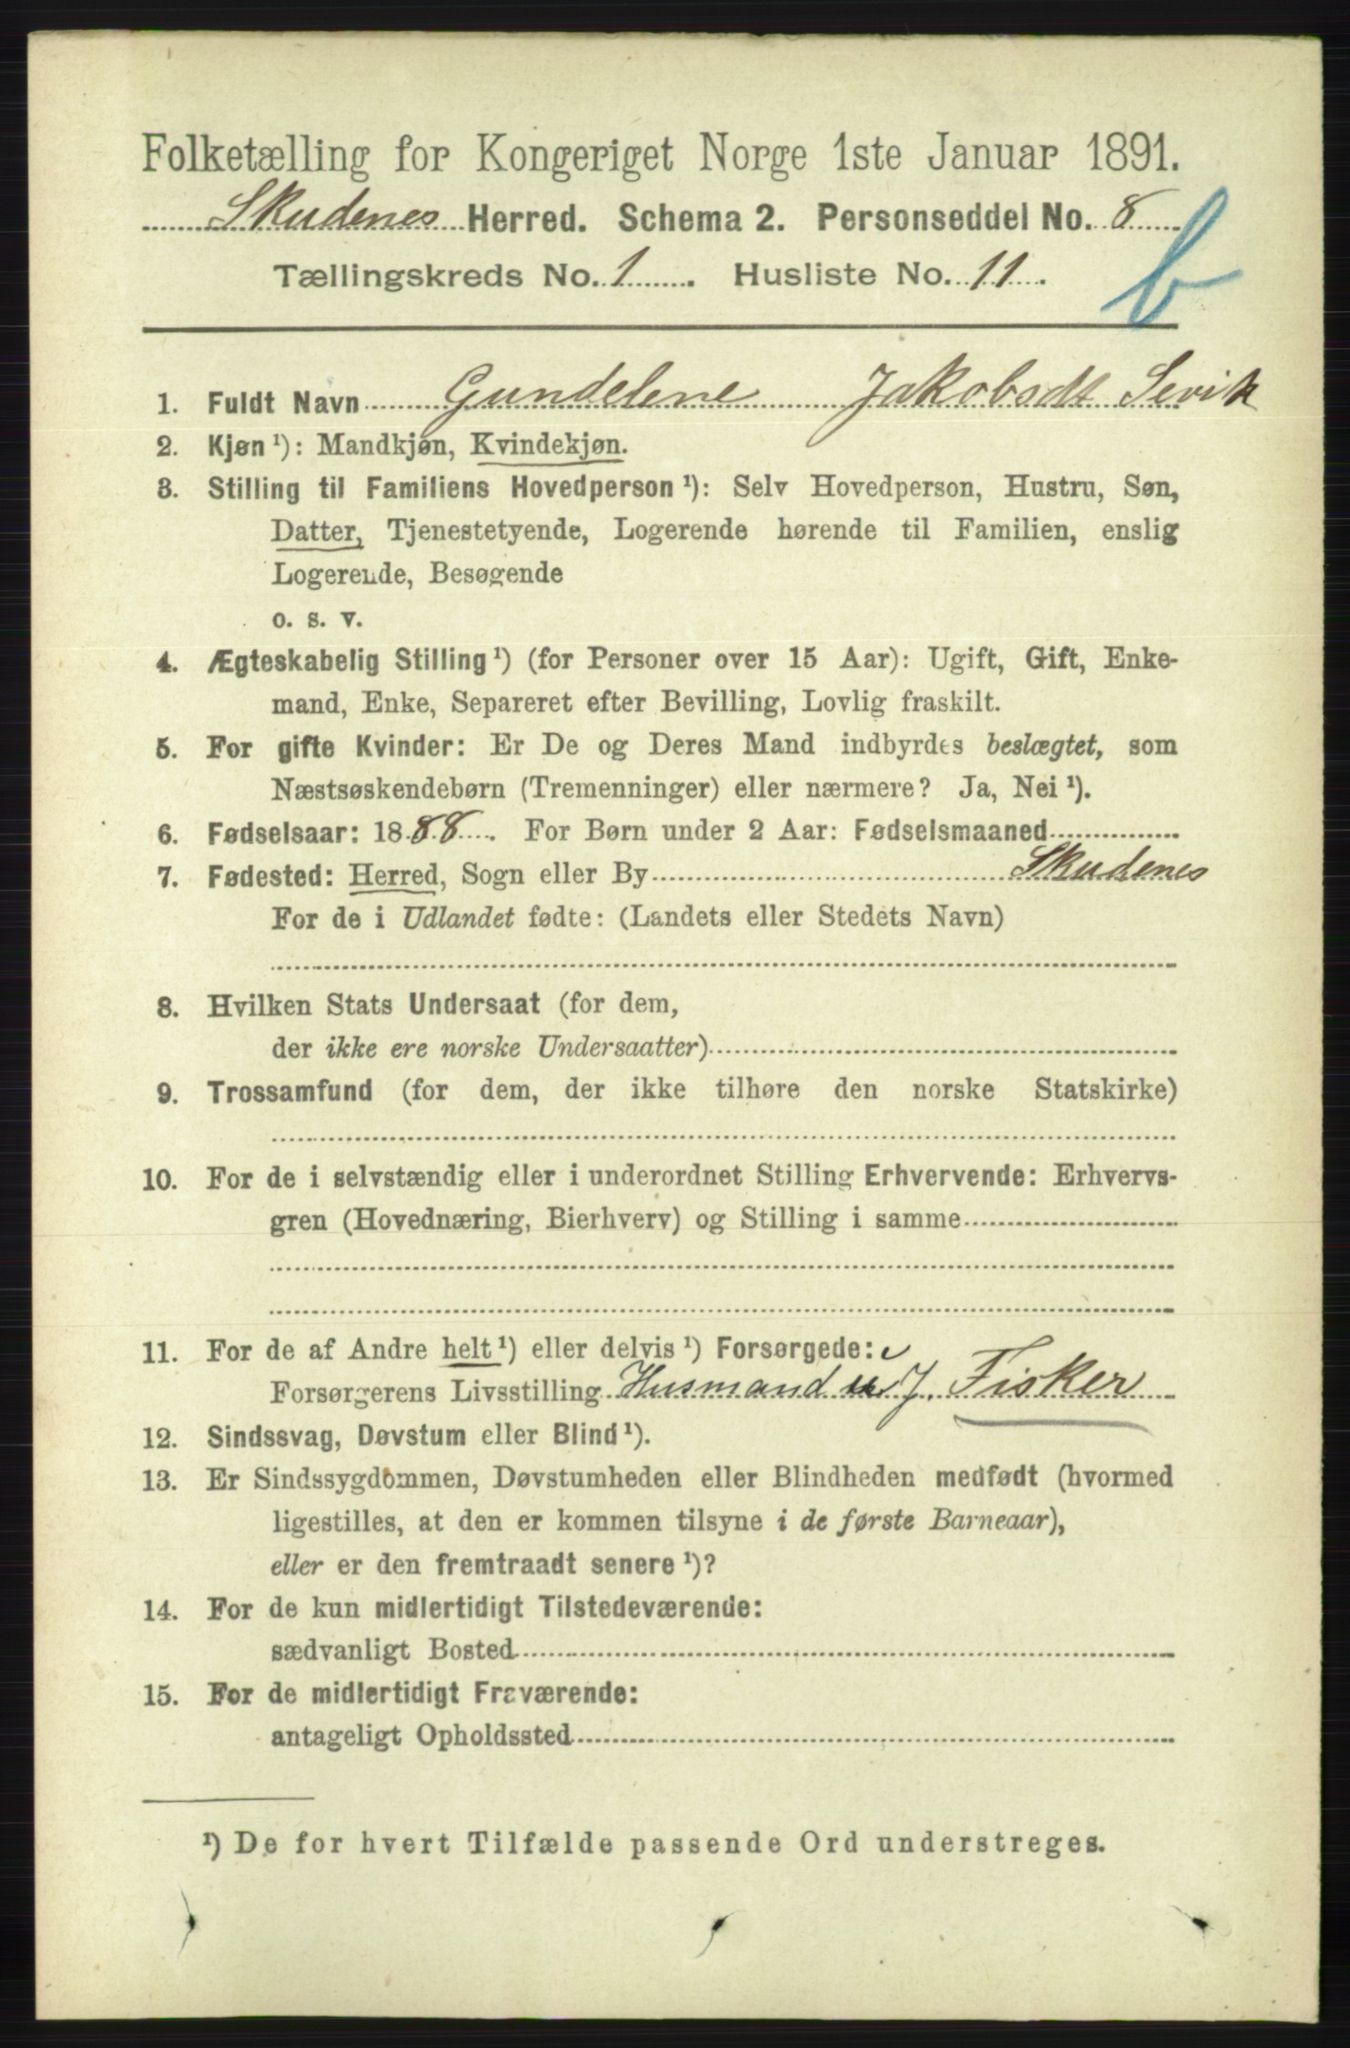 Folketælling for Kongeriget Norge 1ste Januar 1891.
Skudenes Herred. Schema 2. Personseddel No. 8
Tællingskreds No. 1. Husliste No. 11.
b
1. Fuldt Navn Gundelene Jakobsdt Sevik
2. Kjøn ¹): Mandkjøn, Kvindekjøn.
3. Stilling til Familiens Hovedperson ¹): Selv Hovedperson, Hustru, Søn,
Datter, Tjenestetyende, Logerende hørende til Familien, enslig
Logerende, Besøgende
o. s. v.
4. Ægteskabelig Stilling ¹) (for Personer over 15 Aar): Ugift, Gift, Enke-
mand, Enke, Separeret efter Bevilling, Lovlig fraskilt.
5. For gifte Kvinder: Er De og Deres Mand indbyrdes beslægtet, som
Næstsøskendebørn (Tremenninger) eller nærmere? Ja, Nei ¹).
6. Fødselsaar: 1888. For Børn under 2 Aar: Fødselsmaaned
7. Fødested: Herred, Sogn eller By Skudenes
For de i Udlandet fødte: (Landets eller Stedets Navn)
8. Hvilken Stats Undersaat (for dem,
der ikke ere norske Undersaatter)
9. Trossamfund (for dem, der ikke tilhøre den norske Statskirke)
10. For de i selvstændig eller i underordnet Stilling Erhvervende: Erhvervs-
gren (Hovednæring, Bierhverv) og Stilling i samme
11. For de af Andre helt ¹) eller delvis ¹) Forsørgede:
Forsørgerens Livsstilling Husmand J. Fisker
12. Sindssvag, Døvstum eller Blind ¹).
13. Er Sindssygdommen, Døvstumheden eller Blindheden medfødt (hvormed
ligestilles, at den er kommen tilsyne i de første Barneaar),
eller er den fremtraadt senere ¹)?
14. For de kun midlertidigt Tilstedeværende:
sædvanligt Bosted
15. For de midlertidigt Fraværende:
antageligt Opholdssted
¹) De for hvert Tilfælde passende Ord understreges.